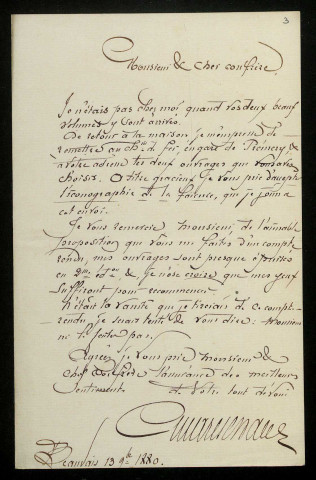 3
Monsieur & cher confrère,
Je n'étais pas chez moi, quand vos deux beaux
volumes y sont arrivés.
De retour à la maison je m'empresse de
remettre au chin. de fer, en gare de
à votre adresse les deux ouvrages que vous avez
choisis. À titre gracieux je vous prie d'accepter
l'iconographie de la faïence, que je joins à
cet envoi.
Je vous remercie, Monsieur, de l'aimable
proposition que vous me faites d'un compte
rendu, mes ouvrages sont presque épuisés
en 2me édon & je n'ose croire que mes yeux
suffiront pour recommencer.
N'était la vanité que je tirerais de ce compte
rendu je serais tenté de vous dire:
ne le faites pas.
Agréez, je vous prie Monsieur &
cher confrère l'assurance des meilleurs
sentiments de votre tout dévoué
Beauvais 13 9bre 1880.